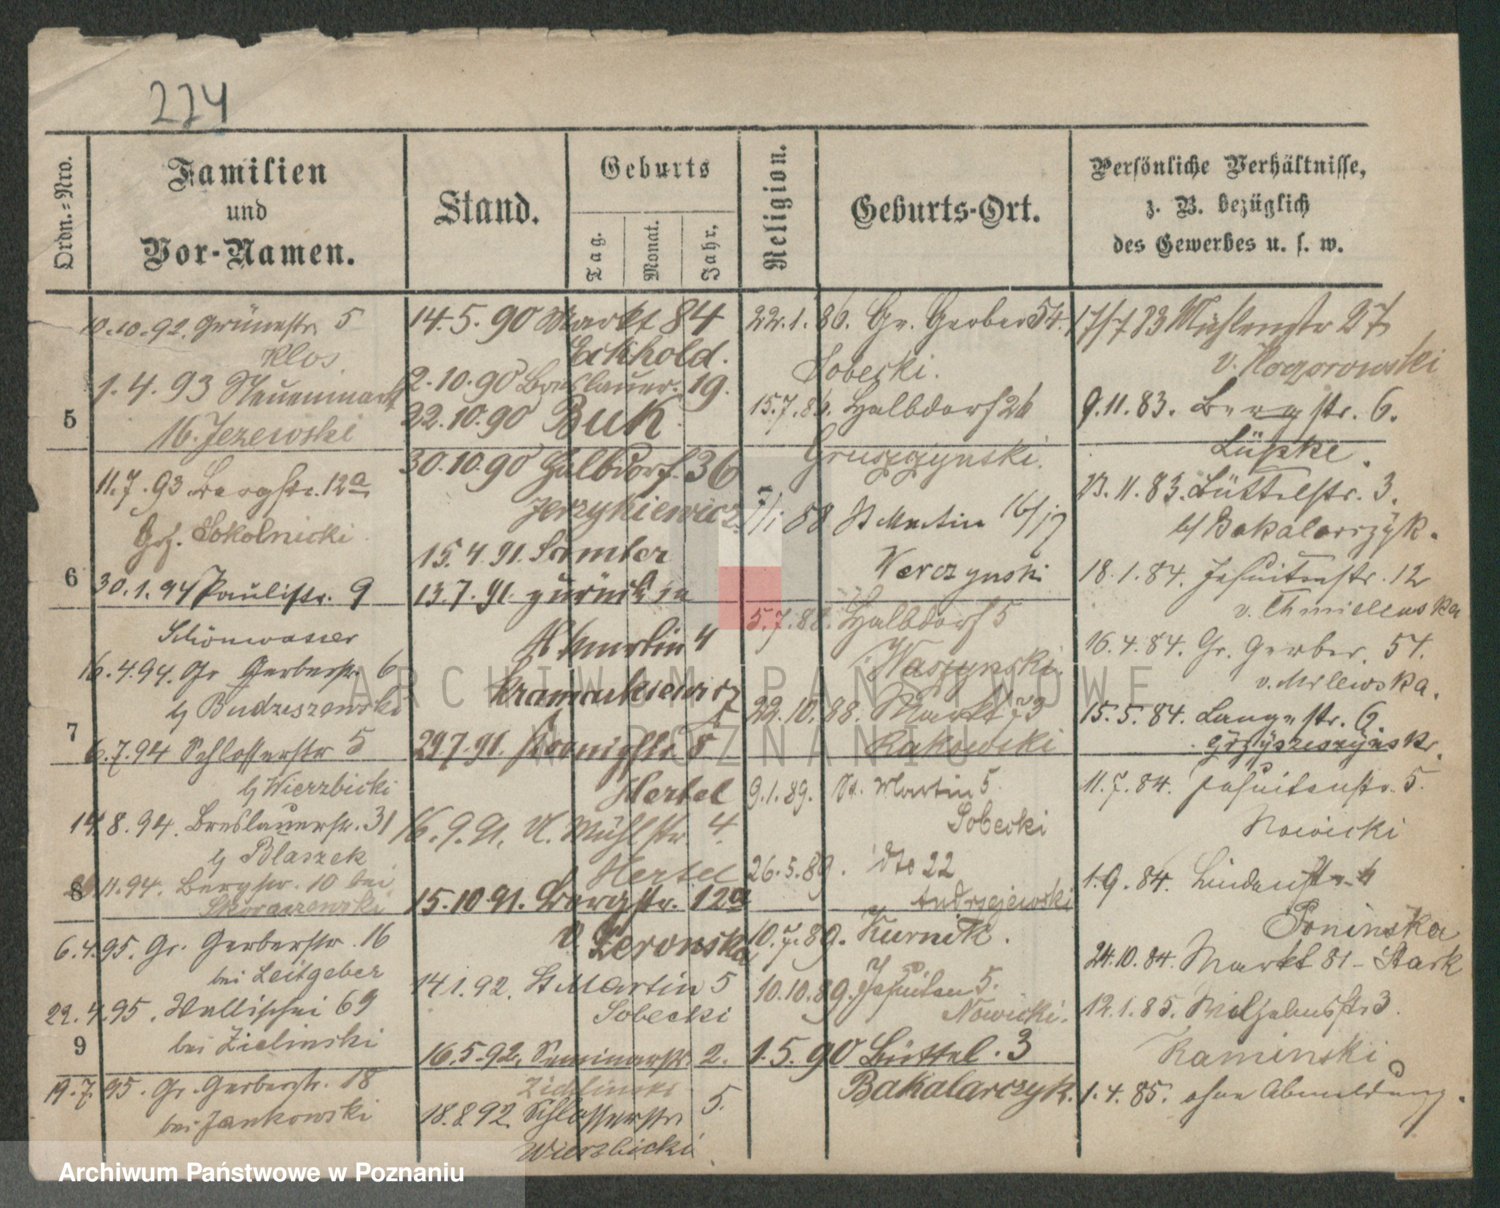 274
Ordn.-Nro.
Familien
und
Vor-Namen.
Stand.
Geburts
Tag.
Monat.
Jahr.
Religion.
Geburts-Ort.
Persönliche Verhältnisse,
z. B. bezüglich
des Gewerbes u. s. w.
5
6
7
8
9
10.10.92. Grünestr. 5
Klos.
1.4.93 Neuenmarkt
16. Jezewski
11.7.93 Bergstr. 12a
Sokolnicki
30.1.94 Paulistr. 9
Schönwasser
16.4.94. Gr. Gerberstr. 6
b/ Budziszewski
6.7.94 Schlosserstr 5
b/ Wierzbicki
14.8.94. Breslauerstr. 31
b/ Blaszek
11.94. Bergstr. 10 bei
Skoraszewski
6.4.95. Gr. Gerberstr. 16
bei Leitgeber
22.4.95. Wallischei 69
bei Zielinski
19.7.95. Gr. Gerberstr. 18
bei Jankowski
14.5.90 Markt 84
Eckhold.
2.10.90 Breslauer. 19.
22.10.90 Buk.
30.10.90 Halbdorf. 36
Jerzykiewicz
15.4.91. Samter
13.7.91. zurück in
St Martin 4
29.7.91. 5
Hertel
16.9.91. Mühlstr 4.
Hertel
15.10.91. Bergstr. 12a
v. Zeronska
14.1.92. St Martin 5
Sobecki
16.5.92. Seminarstr. 2.
Zielinski
18.8.92. Schlosserstr. 5.
Wierzbicki
22.1.86. Gr. Gerber 54.
Sobecki.
15.7.86. Halbdorf 26
Gruszczynski.
7/1 88 St Martin 16/17
Werczynski
5.7.88. Halbdorf 5
Waszynski.
22.10.88. Markt 73
Rakowski
9.1.89. St. Martin 5.
Sobecki
26.3.89. dto 22
Andrzejewski
10.7.89. Kurnik.
10.10.89. Jesuiten 5.
Nowicki.
1.5.90 Büttel. 3
Bakalarczyk.
17/7 83 Mühlenstr 27
9.11.83. Bergstr. 6.
Lüpke.
23.11.83. Büttelstr. 3.
b/ Bakalarczyk.
18.1.84. Jesuitenstr. 12
v. Chmielewska
16.4.84. Gr. Gerber. 54.
v. Milewska.
15.5.84. Langestr. 6
11.7.84. Jesuitenstr. 5.
Nowicki
1.9.84. Lindenstr. 4
Poninska
24.10.84. Markt 81 - Stark
12.1.85. Wilhelmstr 3.
Kaminski
1.4.85. ohne Abmeldung.
ARCHIWUM PAŃSTWOWE
W POZNANIU
Archiwum Państwowe w Poznaniu